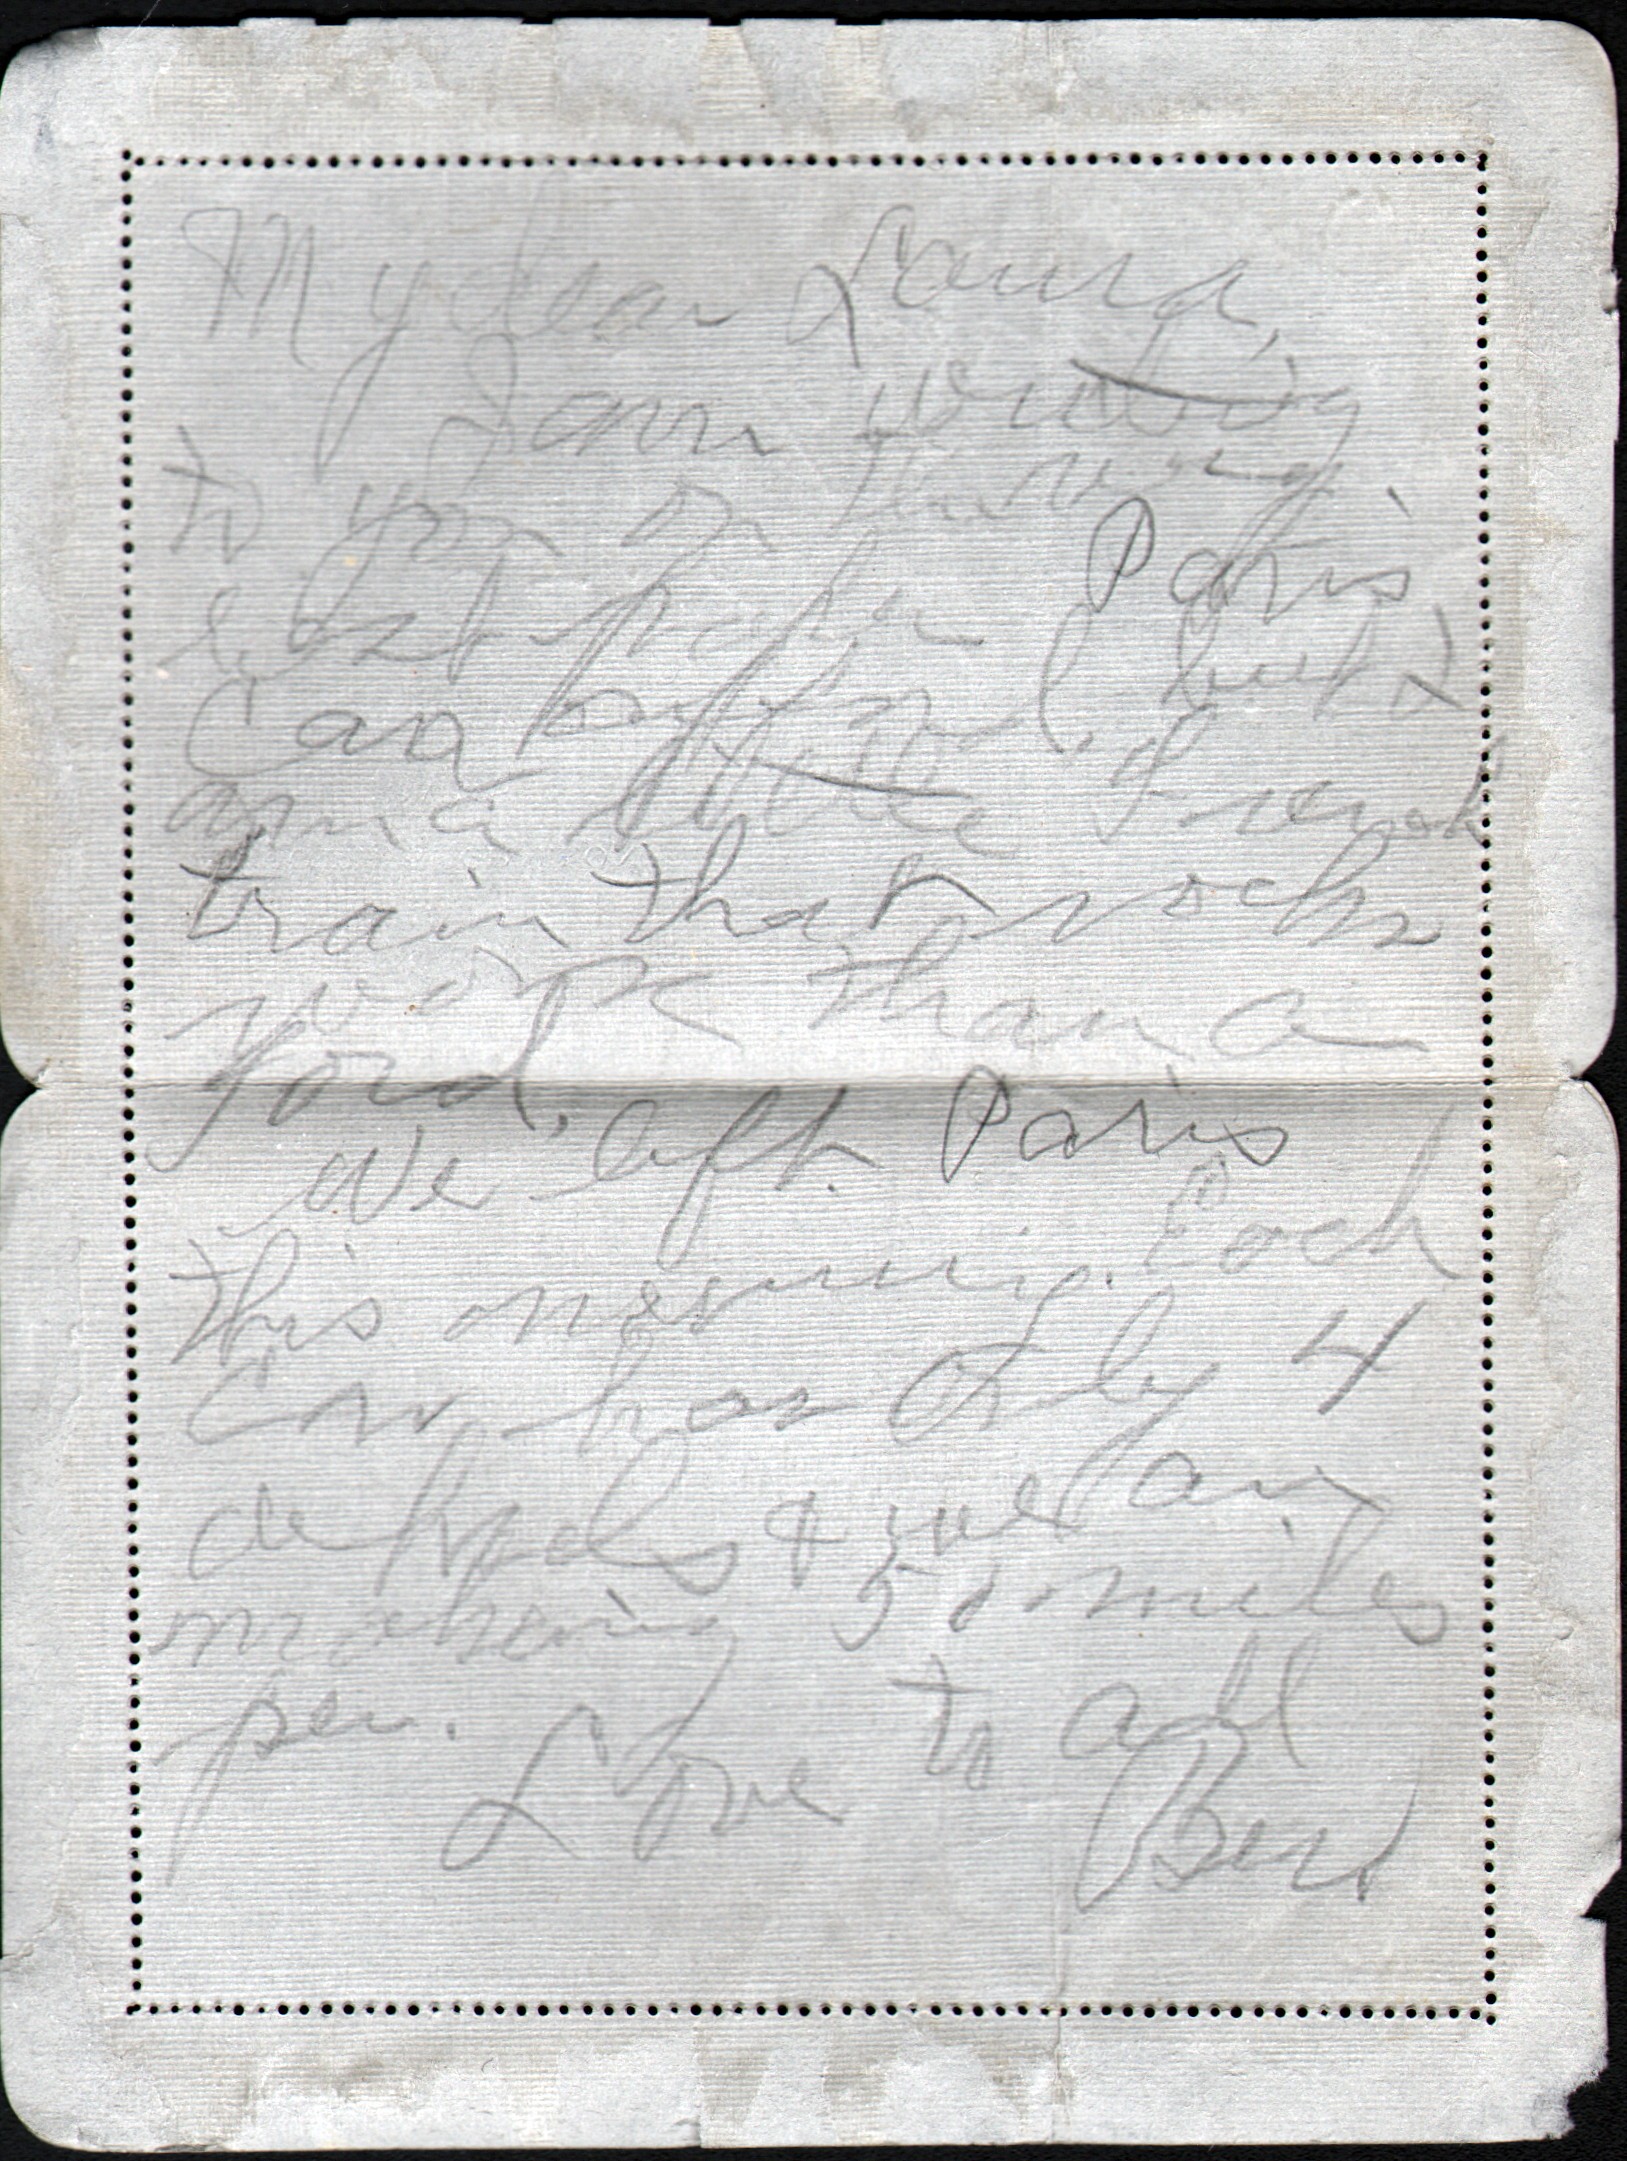 My dear Laura,
I am writing
to you on
best paper Paris
can afford, but I
am a little French
train that rocks
worse than a
Ford.
We left Paris
this morning. Each
Car has only 4
wheels & we are
making 50 miles
per.
Love to all
Ben.